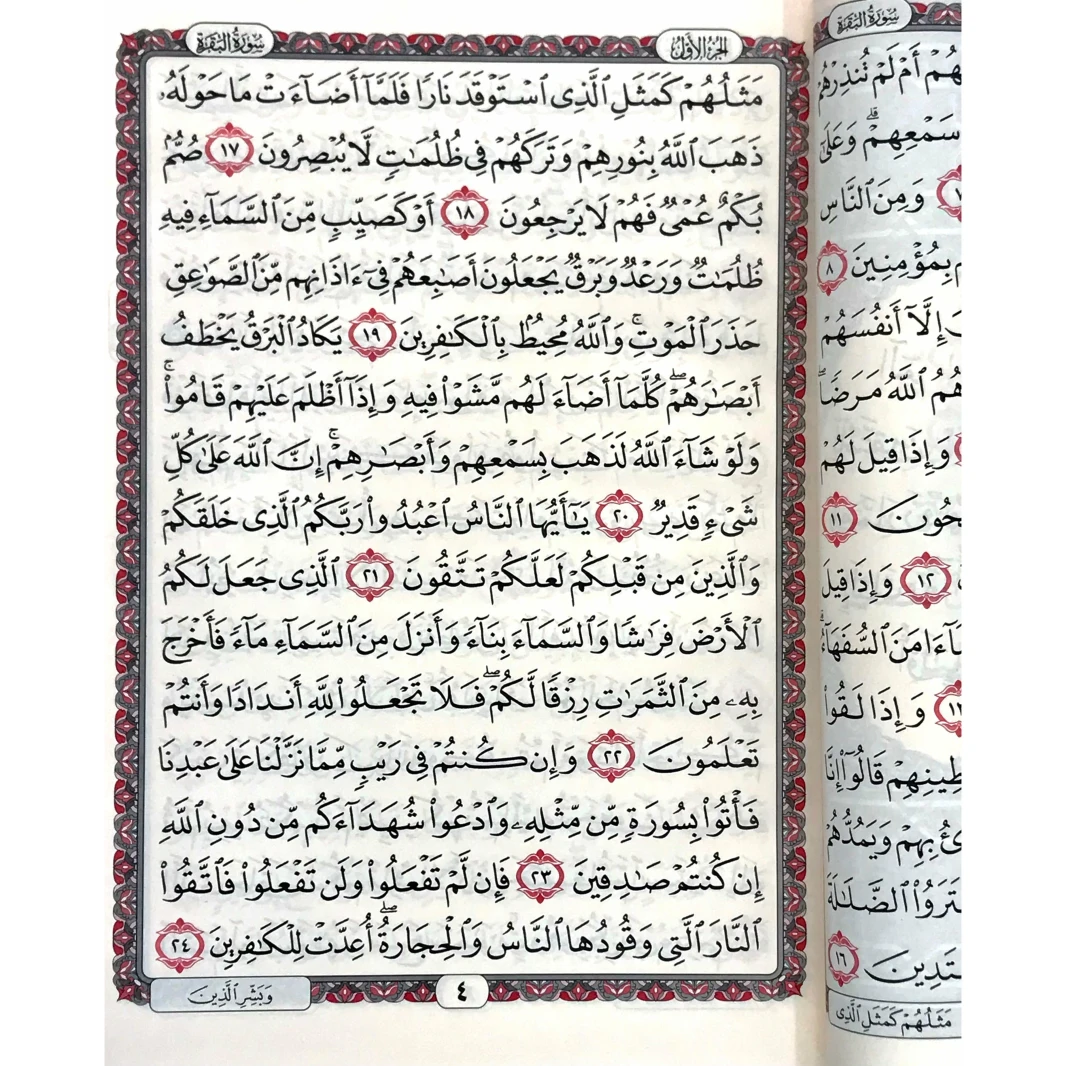 سُورَةُ البَقَرَة
الجُزْءُ الأَوَّلُ
مَثَلُهُمْ كَمَثَلِ ٱلَّذِى ٱسْتَوْقَدَ نَارًا فَلَمَّآ أَضَآءَتْ مَا حَوْلَهُۥ
ذَهَبَ ٱللَّهُ بِنُورِهِمْ وَتَرَكَهُمْ فِى ظُلُمَٰتٍ لَّا يُبْصِرُونَ ١٧ صُمٌّۢ
بُكْمٌ عُمْىٌ فَهُمْ لَا يَرْجِعُونَ ١٨ أَوْ كَصَيِّبٍ مِّنَ ٱلسَّمَآءِ فِيهِ
ظُلُمَٰتٌ وَرَعْدٌ وَبَرْقٌ يَجْعَلُونَ أَصَٰبِعَهُمْ فِىٓ ءَاذَانِهِم مِّنَ ٱلصَّوَٰعِقِ
حَذَرَ ٱلْمَوْتِۚ وَٱللَّهُ مُحِيطٌۢ بِٱلْكَٰفِرِينَ ١٩ يَكَادُ ٱلْبَرْقُ يَخْطَفُ
أَبْصَٰرَهُمْۖ كُلَّمَآ أَضَآءَ لَهُم مَّشَوْا۟ فِيهِ وَإِذَآ أَظْلَمَ عَلَيْهِمْ قَامُوا۟ۚ
وَلَوْ شَآءَ ٱللَّهُ لَذَهَبَ بِسَمْعِهِمْ وَأَبْصَٰرِهِمْۚ إِنَّ ٱللَّهَ عَلَىٰ كُلِّ
شَىْءٍ قَدِيرٌ ٢٠ يَٰٓأَيُّهَا ٱلنَّاسُ ٱعْبُدُوا۟ رَبَّكُمُ ٱلَّذِى خَلَقَكُمْ
وَٱلَّذِينَ مِن قَبْلِكُمْ لَعَلَّكُمْ تَتَّقُونَ ٢١ ٱلَّذِى جَعَلَ لَكُمُ
ٱلْأَرْضَ فِرَٰشًا وَٱلسَّمَآءَ بِنَآءً وَأَنزَلَ مِنَ ٱلسَّمَآءِ مَآءً فَأَخْرَجَ
بِهِۦ مِنَ ٱلثَّمَرَٰتِ رِزْقًا لَّكُمْۖ فَلَا تَجْعَلُوا۟ لِلَّهِ أَندَادًا وَأَنتُمْ
تَعْلَمُونَ ٢٢ وَإِن كُنتُمْ فِى رَيْبٍ مِّمَّا نَزَّلْنَا عَلَىٰ عَبْدِنَا
فَأْتُوا۟ بِسُورَةٍ مِّن مِّثْلِهِۦ وَٱدْعُوا۟ شُهَدَآءَكُم مِّن دُونِ ٱللَّهِ
إِن كُنتُمْ صَٰدِقِينَ ٢٣ فَإِن لَّمْ تَفْعَلُوا۟ وَلَن تَفْعَلُوا۟ فَٱتَّقُوا۟
ٱلنَّارَ ٱلَّتِى وَقُودُهَا ٱلنَّاسُ وَٱلْحِجَارَةُۖ أُعِدَّتْ لِلْكَٰفِرِينَ ٢٤
٤
وَبَشِّرِ ٱلَّذِينَ
سُورَةُ البَقَرَة
أَمْ لَمْ تُنذِرْهُمْ
سَمْعِهِمْۖ وَعَلَىٰٓ
وَمِنَ ٱلنَّاسِ
بِمُؤْمِنِينَ ٨
إِلَّآ أَنفُسَهُمْ
ٱللَّهُ مَرَضًاۖ
وَإِذَا قِيلَ لَهُمْ
١١
١٢ وَإِذَا قِيلَ
ٱلسُّفَهَآءُۗ
وَإِذَا لَقُوا۟
قَالُوٓا۟ إِنَّا
بِهِمْ وَيَمُدُّهُمْ
ٱلضَّلَٰلَةَ
١٦
مَثَلُهُمْ كَمَثَلِ ٱلَّذِى